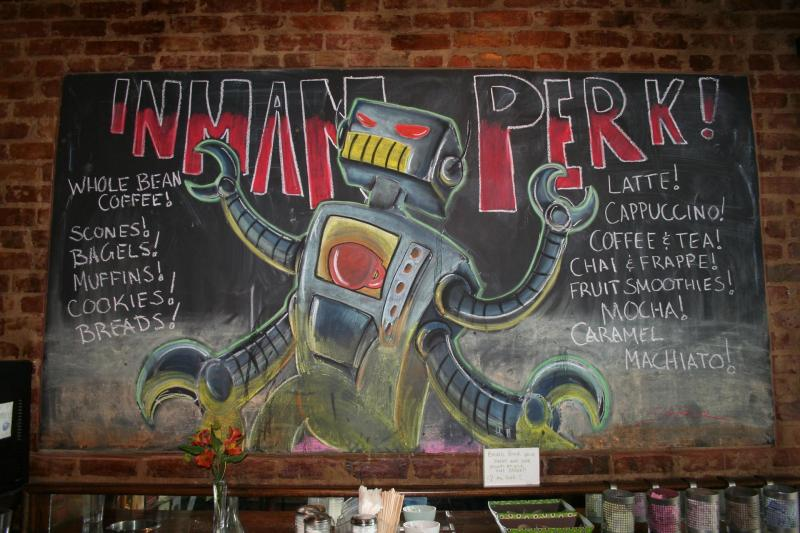 INMAN PERK!
WHOLE BEAN
COFFEE!
SCONES!
BAGELS!
MUFFINS!
COOKIES!
BREADS!
LATTE!
CAPPUCCINO!
COFFEE & TEA!
CHAI & FRAPPE!
FRUIT SMOOTHIES!
MOCHA!
CARAMEL
MACHIATO!